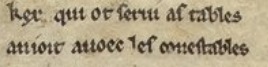 kex qui ot serui as tables
auoit auoec ⁊ les cōnestables